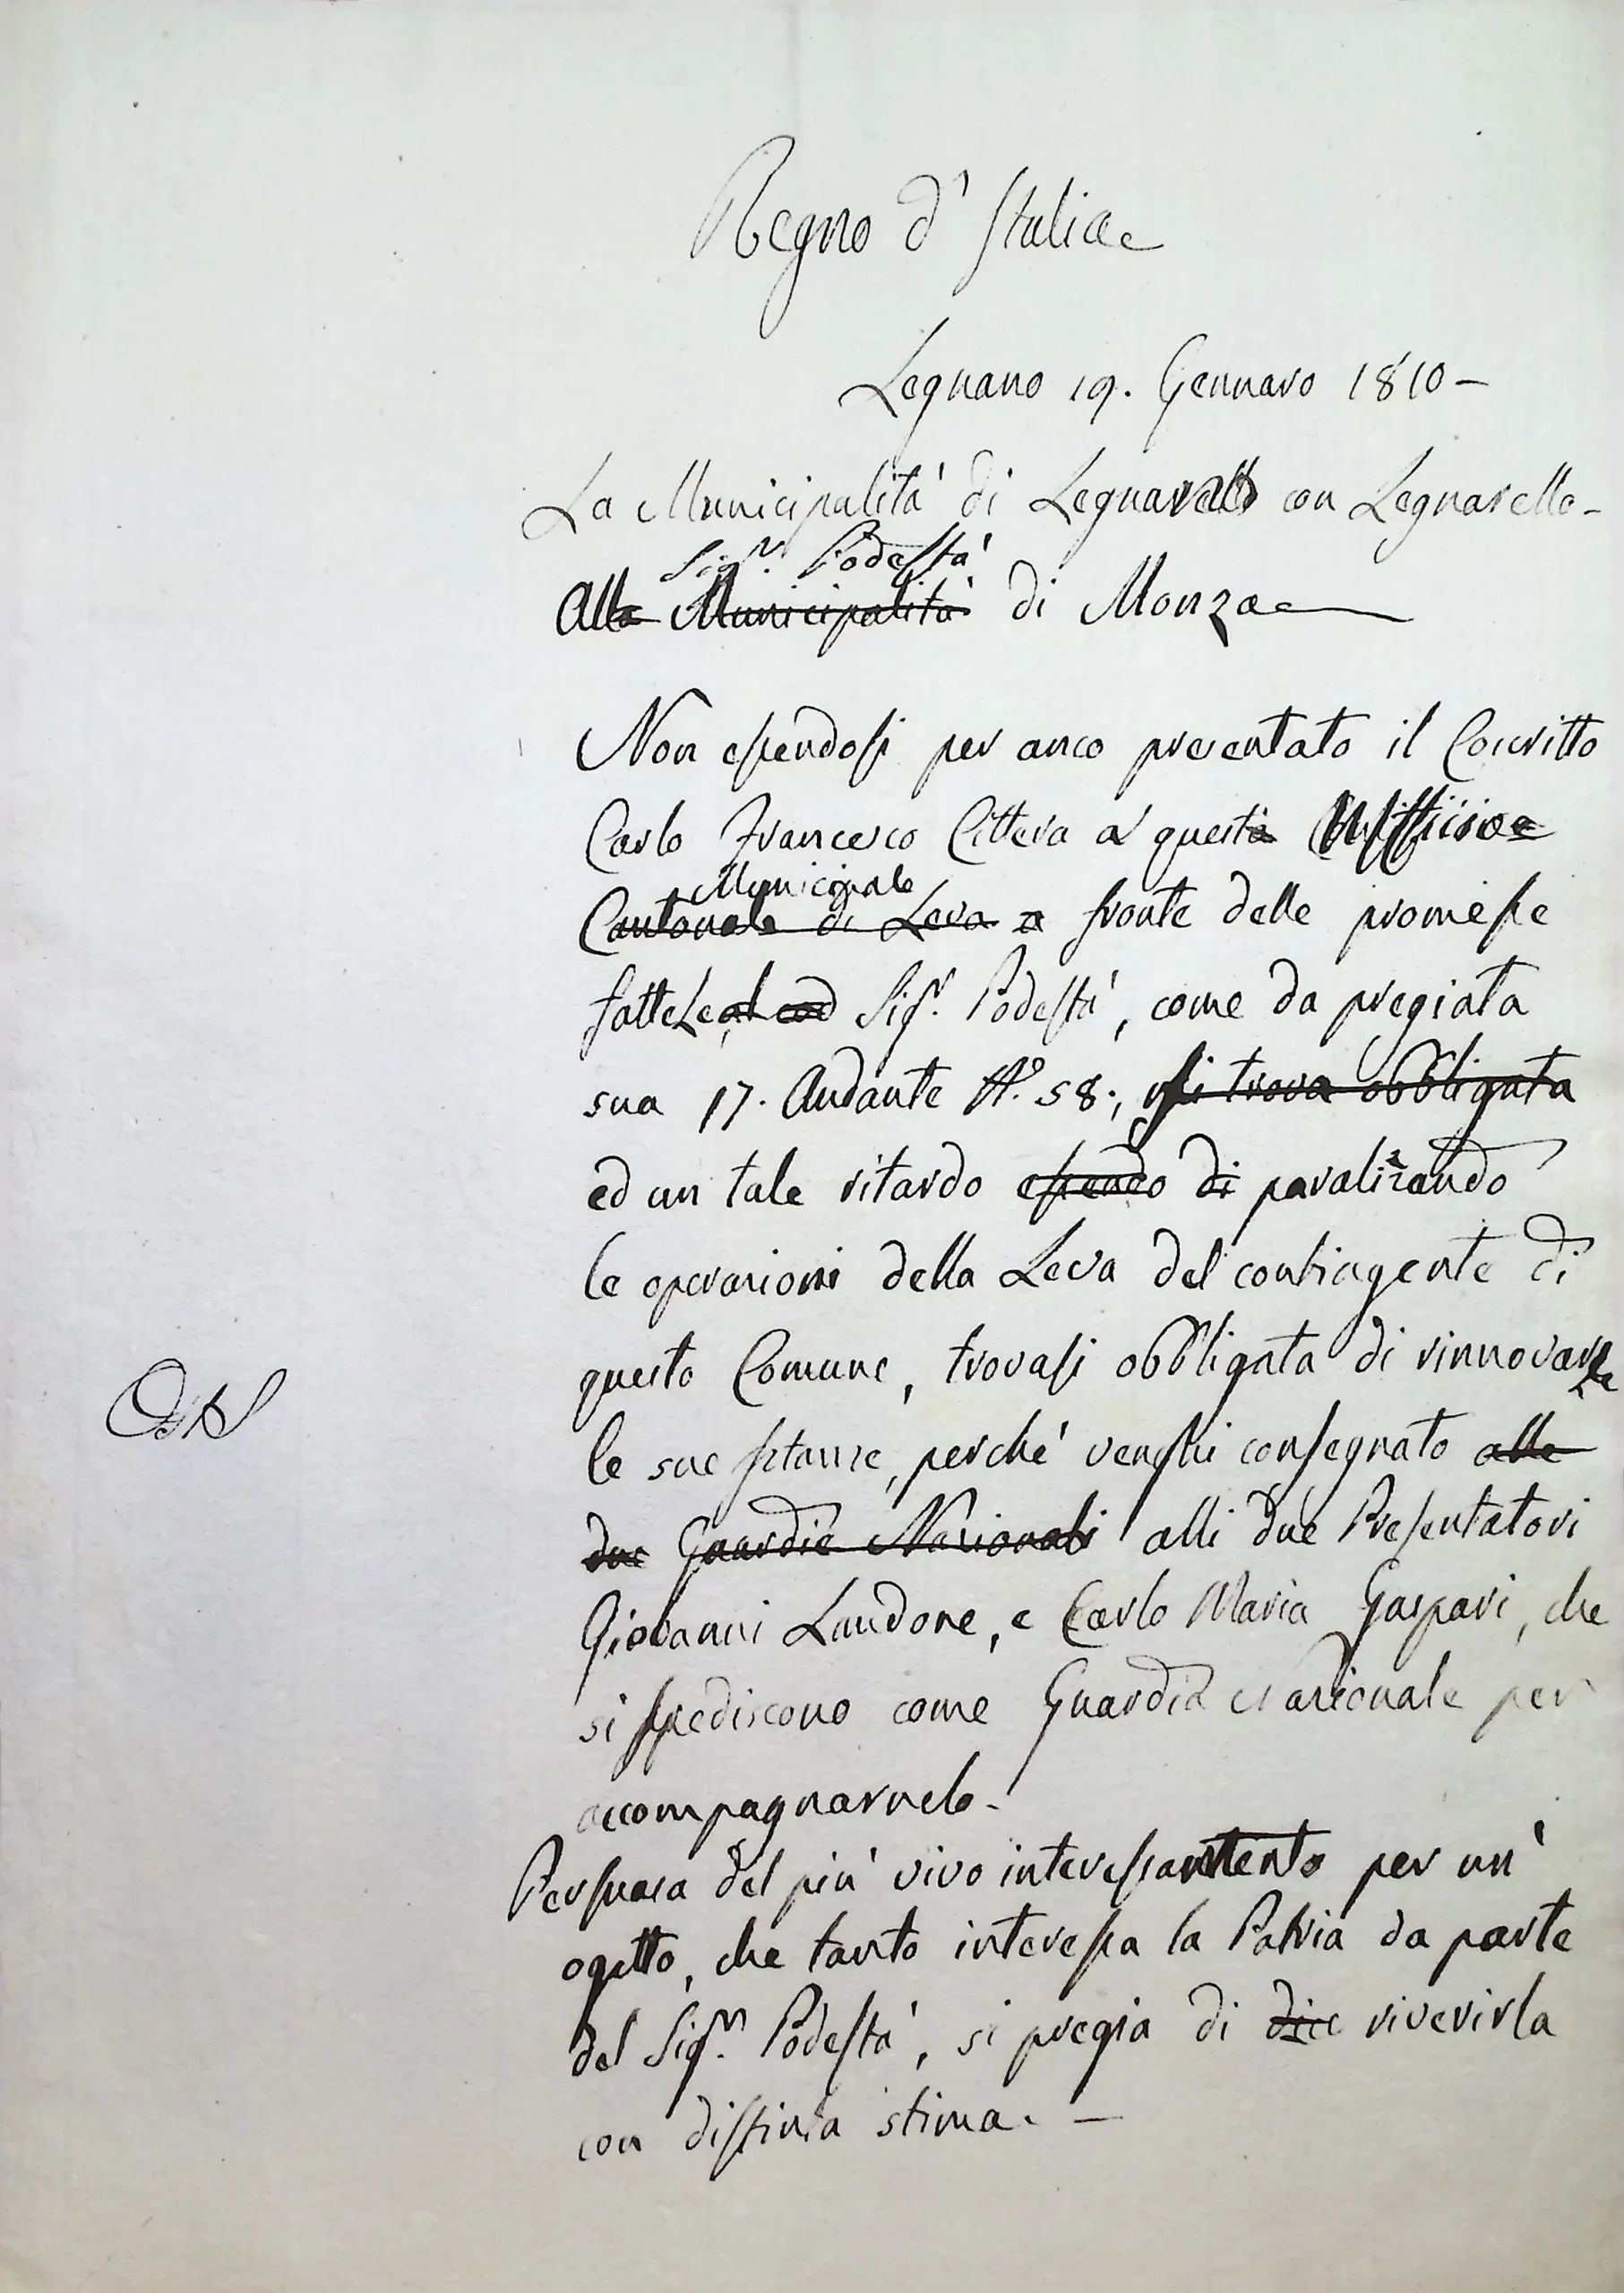 Regno d'Italia
Legnano 19. Gennaro 1810 -
La Municipalità di Legnano con Legnarello -
Sigr. Podestà
Alla Municipalità di Monza
Non essendosi per anco presentato il Coscritto
Carlo Francesco Cittera a questa
Municipale
Cantonale di Leva a fronte delle promesse
fattele, Sigr. Podestà, come da pregiata
sua 17. Andante N.° 58., si trova obbligata
ed un tale ritardo essendo di paralizando
le operazioni della Leva del contingente di
questo Comune, trovasi obbligata di rinnovarle
le sue istanze, perchè venghi consegnato alle
due Guardie Nazionali alli due Presentatori
Giovanni Landone, e Carlo Maria Gaspari, che
si spediscono come Guardia Nazionale per
accompagnarnelo.
Persuasa del più vivo interessamento per un'
ogetto, che tanto interessa la Patria da parte
del Sigr. Podestà, si pregia di riverirla
con distinta stima. -